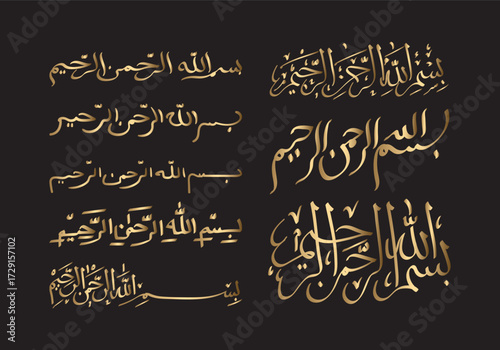 بسم الله الرحمن الرحيم
بسم الله الرحمن الرحيم
بسم الله الرحمن الرحيم
بسم الله الرحمن الرحيم
بسم الله الرحمن الرحيم
بسم الله الرحمن الرحيم
بسم الله الرحمن الرحيم
بسم الله الرحمن الرحيم
Adobe Stock | #1729157102